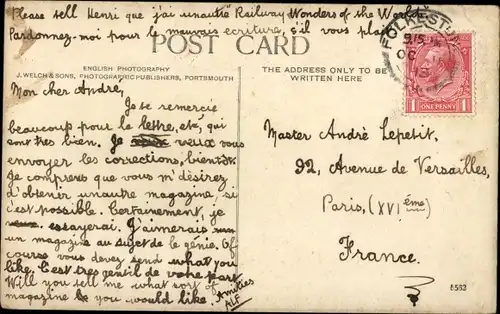 Please sell Henri que j'ai unautre Railway Wonders of the World
Pardonnez-moi pour le mauvais ecriture, s'il vous plait
POST CARD
ENGLISH PHOTOGRAPHY
J. WELCH & SONS, PHOTOGRAPHIC PUBLISHERS, PORTSMOUTH
THE ADDRESS ONLY TO BE
WRITTEN HERE
FOLKESTONE
9.15
OC
13
ONE PENNY
Mon cher André,
Je se remercie
beaucoup pour le lettre, etc, qui
sont très bien. Je veux vous
envoyer les corrections, bientôt.
Je comprens que vous m'désirez
d'obténir unautre magazine, si
c'est possible. Certainement, je
essayerai. J'aimerais
un magazine au sujet de le génie. Of
course vous devez send what you
like. C'est très gentil de votre part
Will you tell me what sort of
magazine you would like.
Amitiés
ALF
Master André Lepetit,
92, Avenue de Versailles,
Paris, (XVIème)
France.